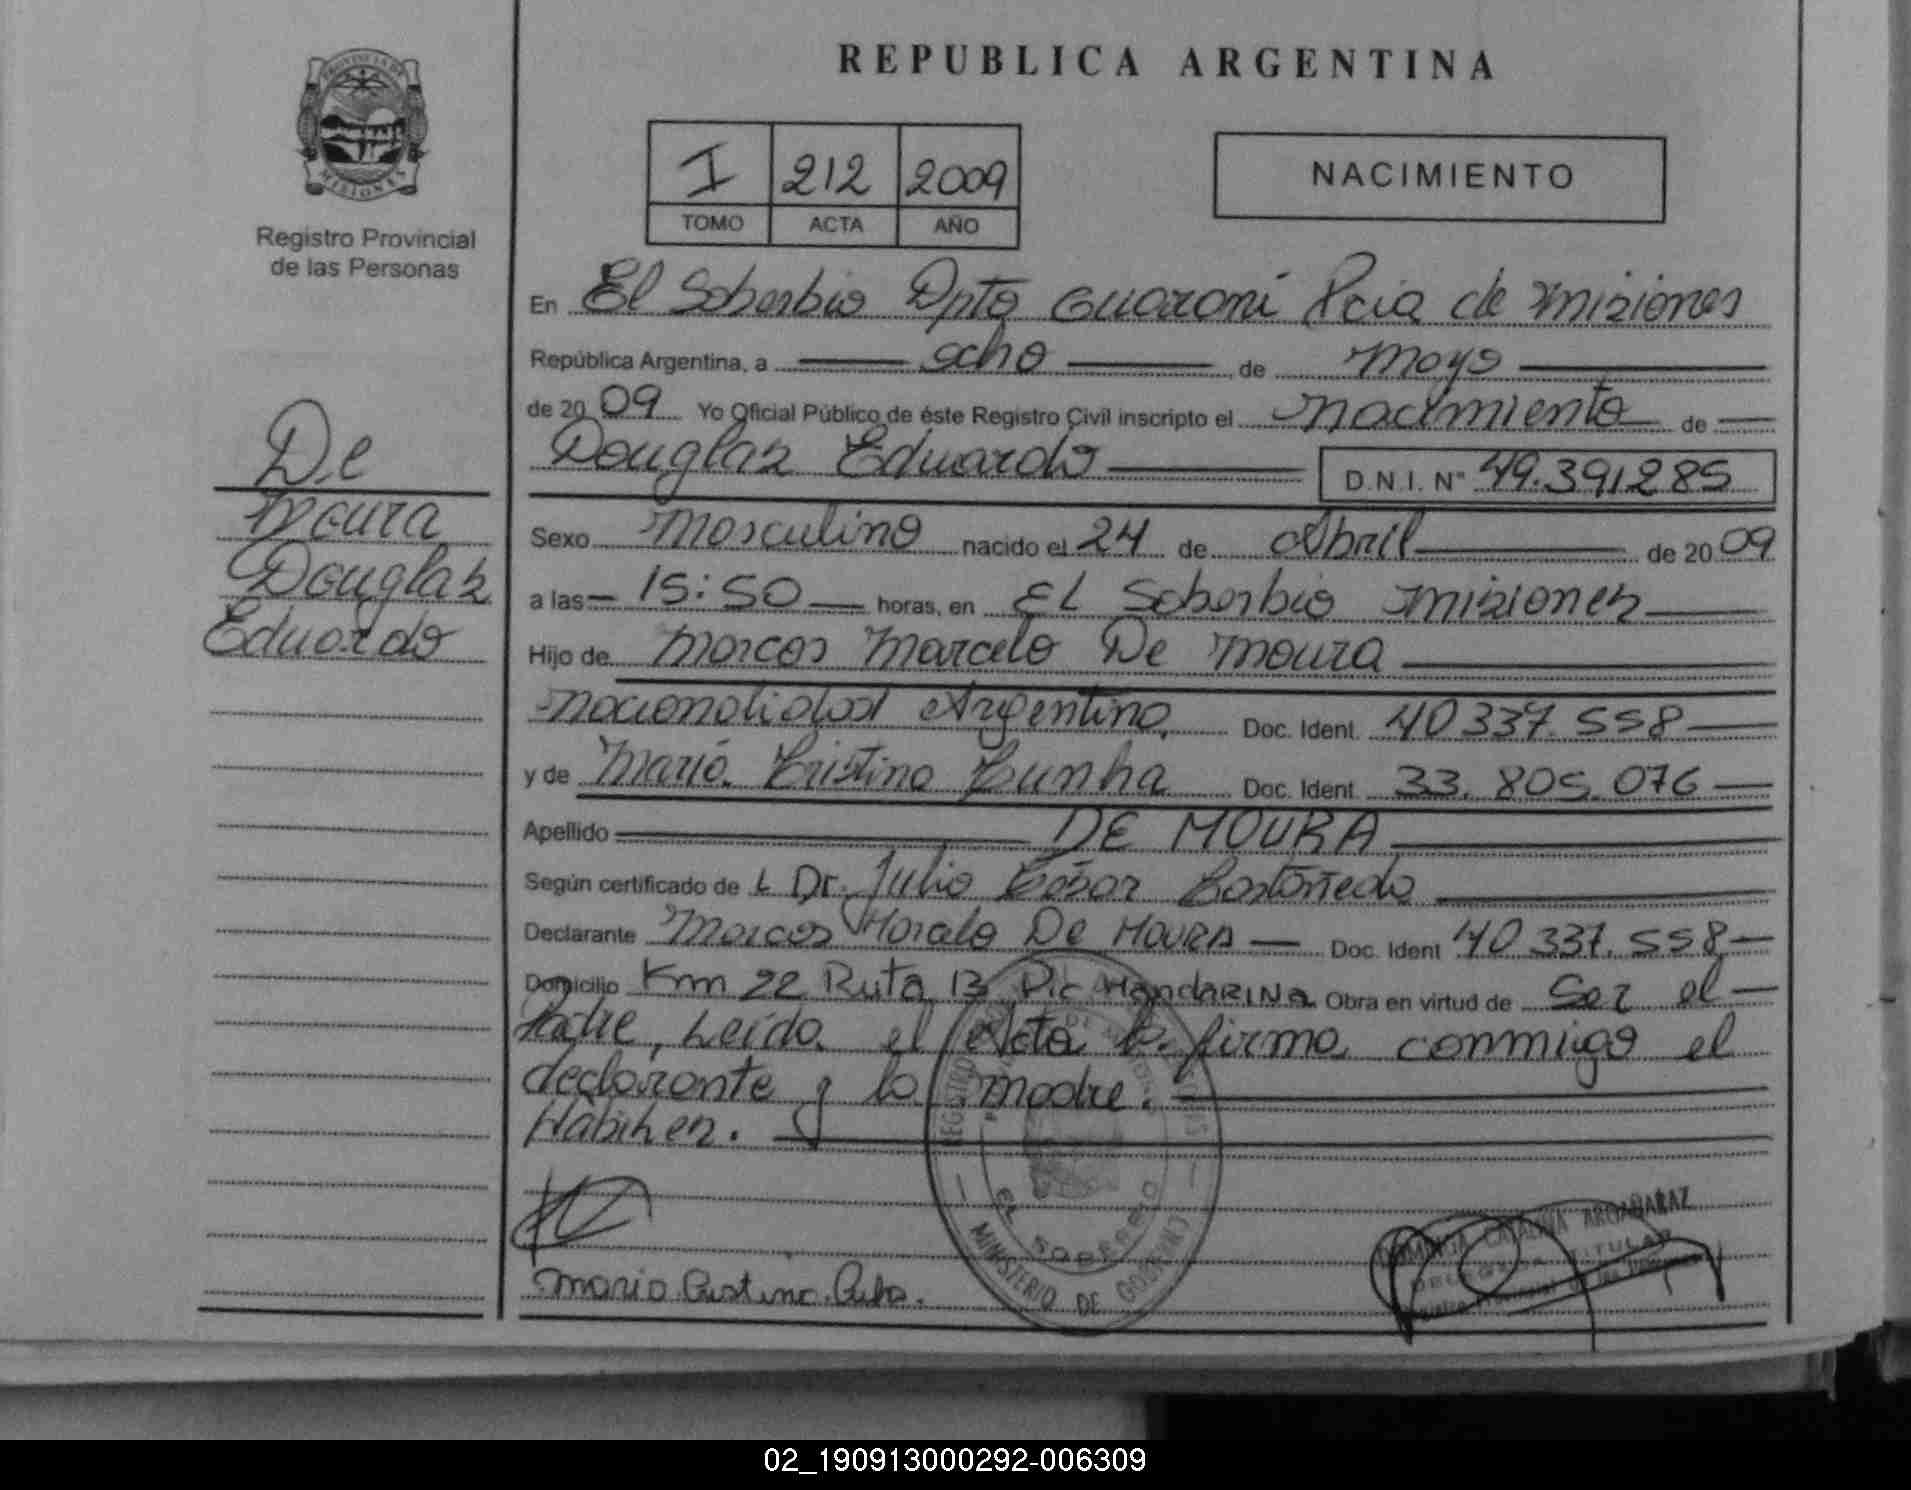 REPUBLICA ARGENTINA
PROVINCIA DE
MISIONES
Registro Provincial
de las Personas
I 212 2009
TOMO ACTA AÑO
NACIMIENTO
En El Soberbio Dpto Guaraní Pcia de Misiones
República Argentina, a ocho de Mayo
de 20 09 Yo Oficial Público de éste Registro Civil inscripto el nacimiento de
Douglas Eduardo D.N.I. Nº 49.391.285
De
Moura
Douglas
Eduardo
Sexo Masculino nacido el 24 de Abril de 20 09
a las 15:50 horas, en El Soberbio Misiones
Hijo de Marcos Marcelo De Moura
nacionalidad Argentina, Doc. Ident. 40 337.558
y de María Cristina Cunha Doc. Ident. 33.805.076
Apellido DE MOURA
Según certificado de L Dr. Julio César Castañeda
Declarante Marcos Marcelo De MOURA Doc. Ident 40 337.558
Domicilio Km 22 Ruta 13 Pic. MandaRINa Obra en virtud de Ser el
Padre, Leída el Acta la firma conmigo el
declarante y la madre.
REGISTRO
EL SOBERBIO
MINISTERIO DE GOBIERNO
CATALINA ARGAÑARAZ
DELEGADA TITULAR